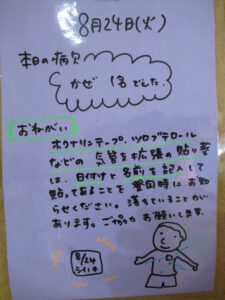 8月24日(火)
本日の病欠
かぜ 1名でした。
おねがい
ホクナリンテープ、ツロブテロール
などの 気管を拡張の貼り薬
は、日付けと名前を記入して
貼ってあることを 登園時にお知
らせください。落ちていることが
あります。ご協力 お願いします。
8/24